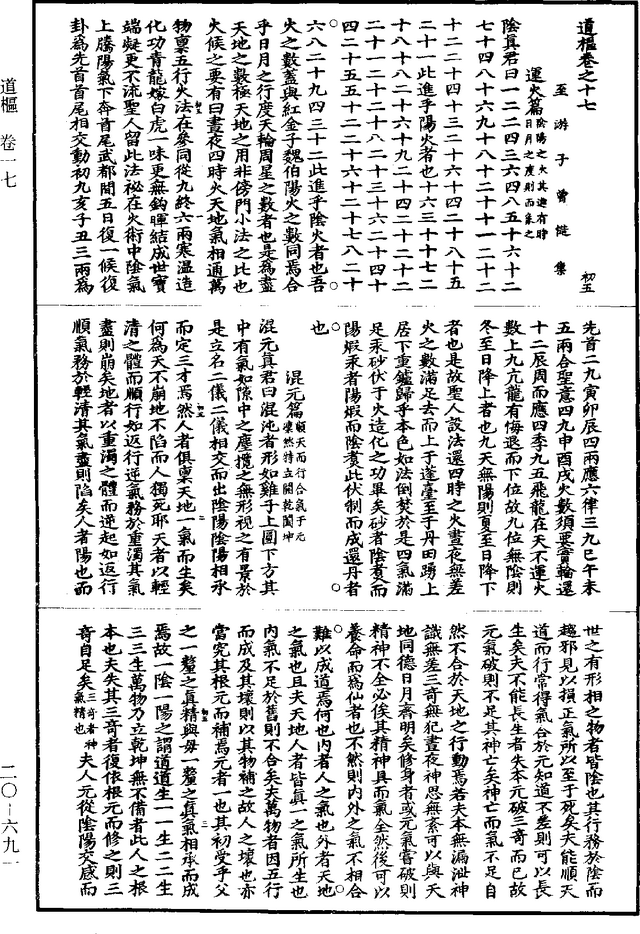 道樞卷之十七 初五
至游子曾慥集
運火篇 陰陽之火其進有時 日月之度則而象之
陰眞君曰一二二四三六四八五十六十二
七十四八十六九十八十二十十一二十二
十二二十四十三二十六十四二十八十五
二十一此進乎陽火者也十六三十十七二
十八十八二十六十九二十四二十二十二
二十一二十二十八二十三十六二十四十
四二十五十二二十六十二十七八二十
六八二十九四三十二此進乎陰火者也吾
火之數蓋與紅金子魏伯陽火之數同焉合
乎日月之行度天輪周星之數者也是爲盡
天地之數極天地之用非傍門小法之比也
火候之要有曰晝夜四時火天地氣相通萬
物稟五行火法在參同從九終六兩寒溫造
化功青龍嫁白虎一味更無鈎暉結成世寶
端凝更不流聖人留此法祕在火術中陰氣
上騰陽氣下奔首尾武都間五日復一候復
卦爲先首首尾相交動初九亥子丑三兩爲
先首二九寅卯辰四兩應六律三九巳午未
五兩合聖意四九申酉戌火數須要實輪還
十二辰周而應四季九五飛龍在天不運火
數上九亢龍有悔退而下位故九位無陰則
冬至日降上者也九天無陽則夏至日降下
者也是故聖人設法還四時之火晝夜無差
火之數滿足去而上于蓬臺至于丹田踴上
居下重鑪歸乎本色如法倒焚於是四氣滿
足汞砂伏于火造化之功畢矣砂者陰煑而
陽煅汞者陽煅而陰煑此伏制而成還丹者
也
混元篇 順天而行合氣于元 凜然特立闔乾闢坤
混元眞君曰混沌者形如雞子上圓下方其
中有氣如隙中之塵攬之無形視之有景於
是立名二儀二儀相交而出陰陽陰陽相承
而定三才焉然人者俱稟天地一氣而生矣
何爲天不崩地不陷而人獨死耶天者以輕
清之體而順行如返行逆氣務於重濁其氣
盡則崩矣地者以重濁之體而逆起如返行
順氣務於輕清其氣盡則陷矣人者陽也而
世之有形相之物者皆陰也其行務於陰而
趨邪見以損正氣所以至于死矣夫能順天
道而行常得氣合於元知道不差則可以長
生矣夫不能長生者失本元破三奇而已故
元氣破則不足其神亡矣神亡而氣不足自
然不合於天地之行動焉若夫本無漏泄神
識無差三奇無犯晝夜神思無紊可以與天
地同德日月齊明矣修身者或元氣嘗破則
精神不全必俟其精神具而氣全然後可以
養命而爲仙者也不然則內外之氣不相合
難以成道焉何也內者人之氣也外者天地
之氣也且夫天地人者皆眞一之氣所生也
內氣不足於舊則不合矣夫萬物者因五行
而成及其壞則以其物補之故人之壞也亦
當究其根元而補焉元者一也其初受乎父
之一釐之眞精與母一釐之眞氣相承而成
焉故一陰一陽之謂道道生一一生二二生
三三生萬物乃立乾坤無不備者此人之根
本也夫失其三奇者復依根元而修之則三
奇自足矣三奇者神氣精也夫人元從陰陽交感而
道樞 卷一七
二〇－六九一